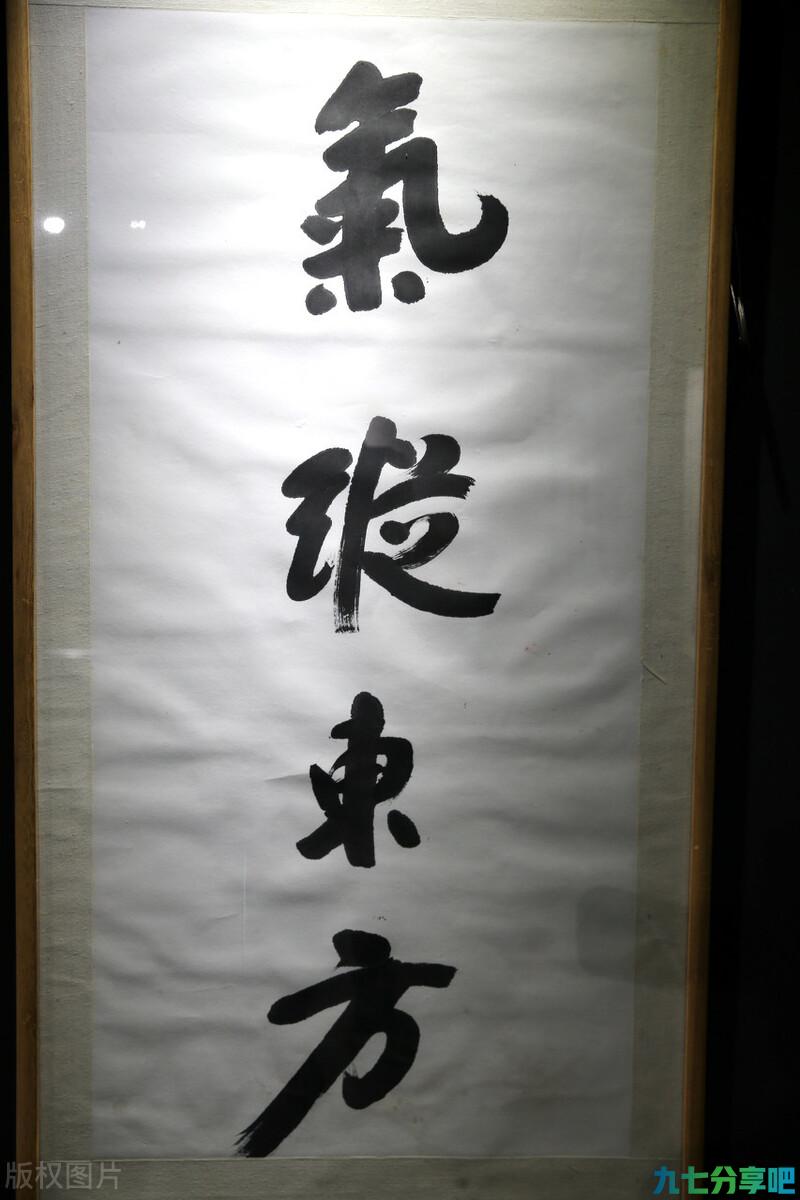 氣縱東方
版权图片
九七分享吧